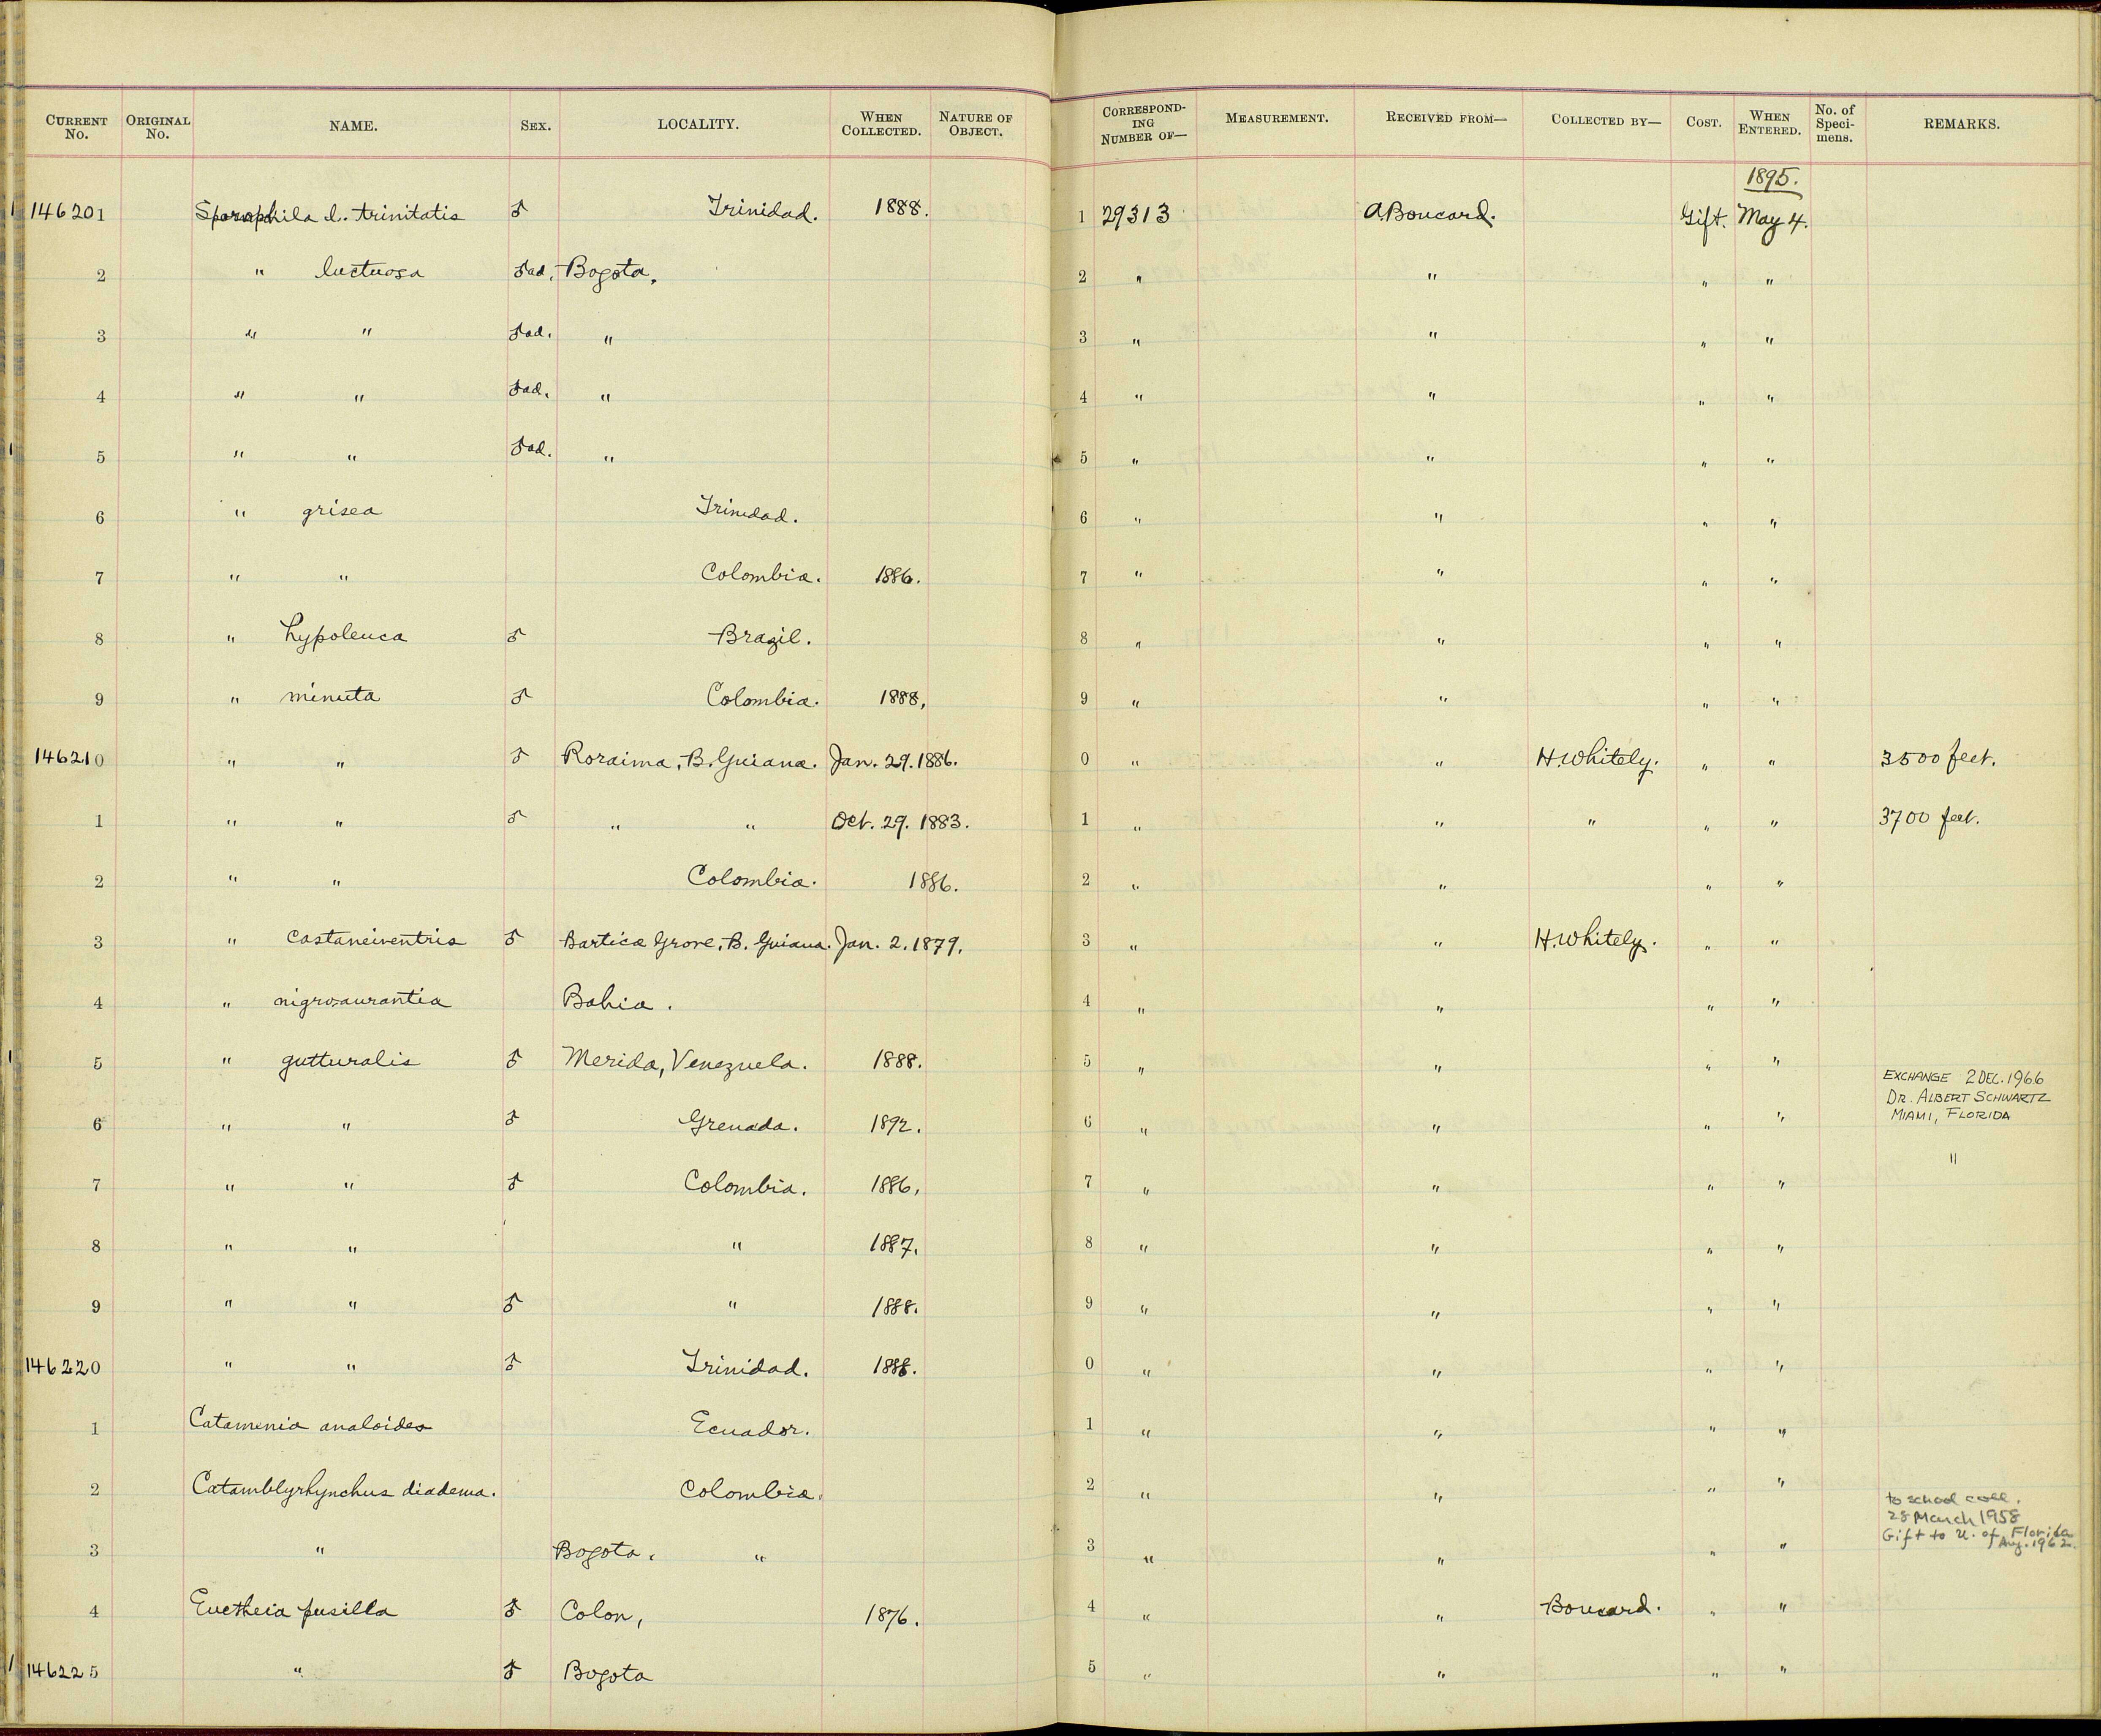 CURRENT No. ORIGINAL No. NAME. SEX. LOCALITY. WHEN COLLECTED. NATURE OF OBJECT. CORRESPONDING NUMBER OF— MEASUREMENT. RECEIVED FROM— COLLECTED BY— COST. WHEN ENTERED. No. of Specimens. REMARKS.
1895.
146201 Sporophila l. trinitatis ♂ Trinidad. 1888. 1 29313 A. Boucard. Gift. May 4.
2 " luctuosa ♂ad. Bogota. 2 " " " "
3 " " ♂ad. " 3 " " " "
4 " " ♂ad. " 4 " " " "
5 " " ♂ad. " 5 " " " "
6 " grisea Trinidad. 6 " " " "
7 " " Colombia. 1886. 7 " " " "
8 " hypoleuca ♂ Brazil. 8 " " " "
9 " minuta ♂ Colombia. 1888, 9 " " " "
146210 " " ♂ Roraima, B. Guiana. Jan. 29. 1886. 0 " " H. Whitely. " " 3500 feet.
1 " " ♂ " " Oct. 29. 1883. 1 " " " " " 3700 feet.
2 " " Colombia. 1886. 2 " " " "
3 " castaneiventris ♂ Bartica Grove, B. Guiana. Jan. 2. 1879. 3 " " H. Whitely. " "
4 " nigro-aurantia Bahia. 4 " " " "
5 " gutturalis ♂ Merida, Venezuela. 1888. 5 " " " "
EXCHANGE 2 DEC. 1966
DR. ALBERT SCHWARTZ
MIAMI, FLORIDA
6 " " ♂ Grenada. 1892. 6 " " " "
"
7 " " ♂ Colombia. 1886, 7 " " " "
8 " " " 1887. 8 " " " "
9 " " ♂ " 1888. 9 " " " "
146220 " " ♂ Trinidad. 1888. 0 " " " "
1 Catamenia analoides Ecuador. 1 " " " "
2 Catamblyrhynchus diadema. Colombia. 2 " " " "
to school coll.
28 March 1958
Gift to U. of Florida
Aug. 1962.
3 " Bogota, " 3 " " " "
4 Euetheia pusilla ♂ Colon, 1876. 4 " " Boucard. " "
146225 " ♂ Bogota 5 " " " "